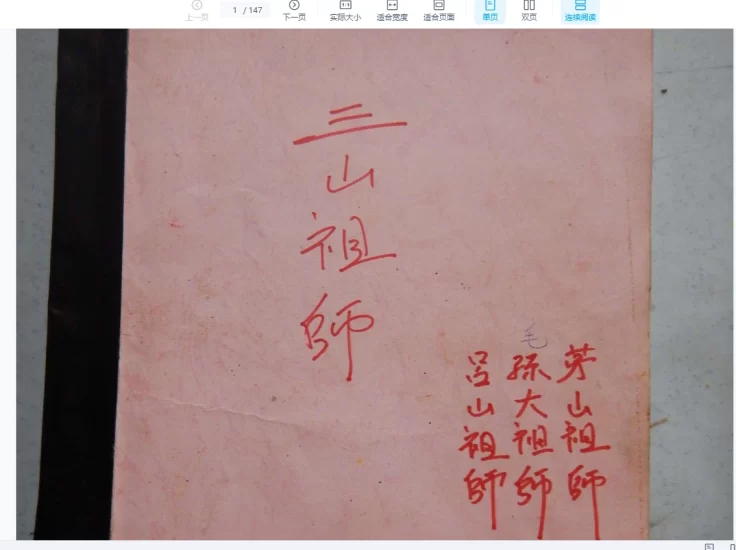 上一页
1 / 147
下一页
实际大小
适合宽度
适合页面
单页
双页
连续阅读
三山祖師
茅山祖師
毛
孫大祖師
呂山祖師